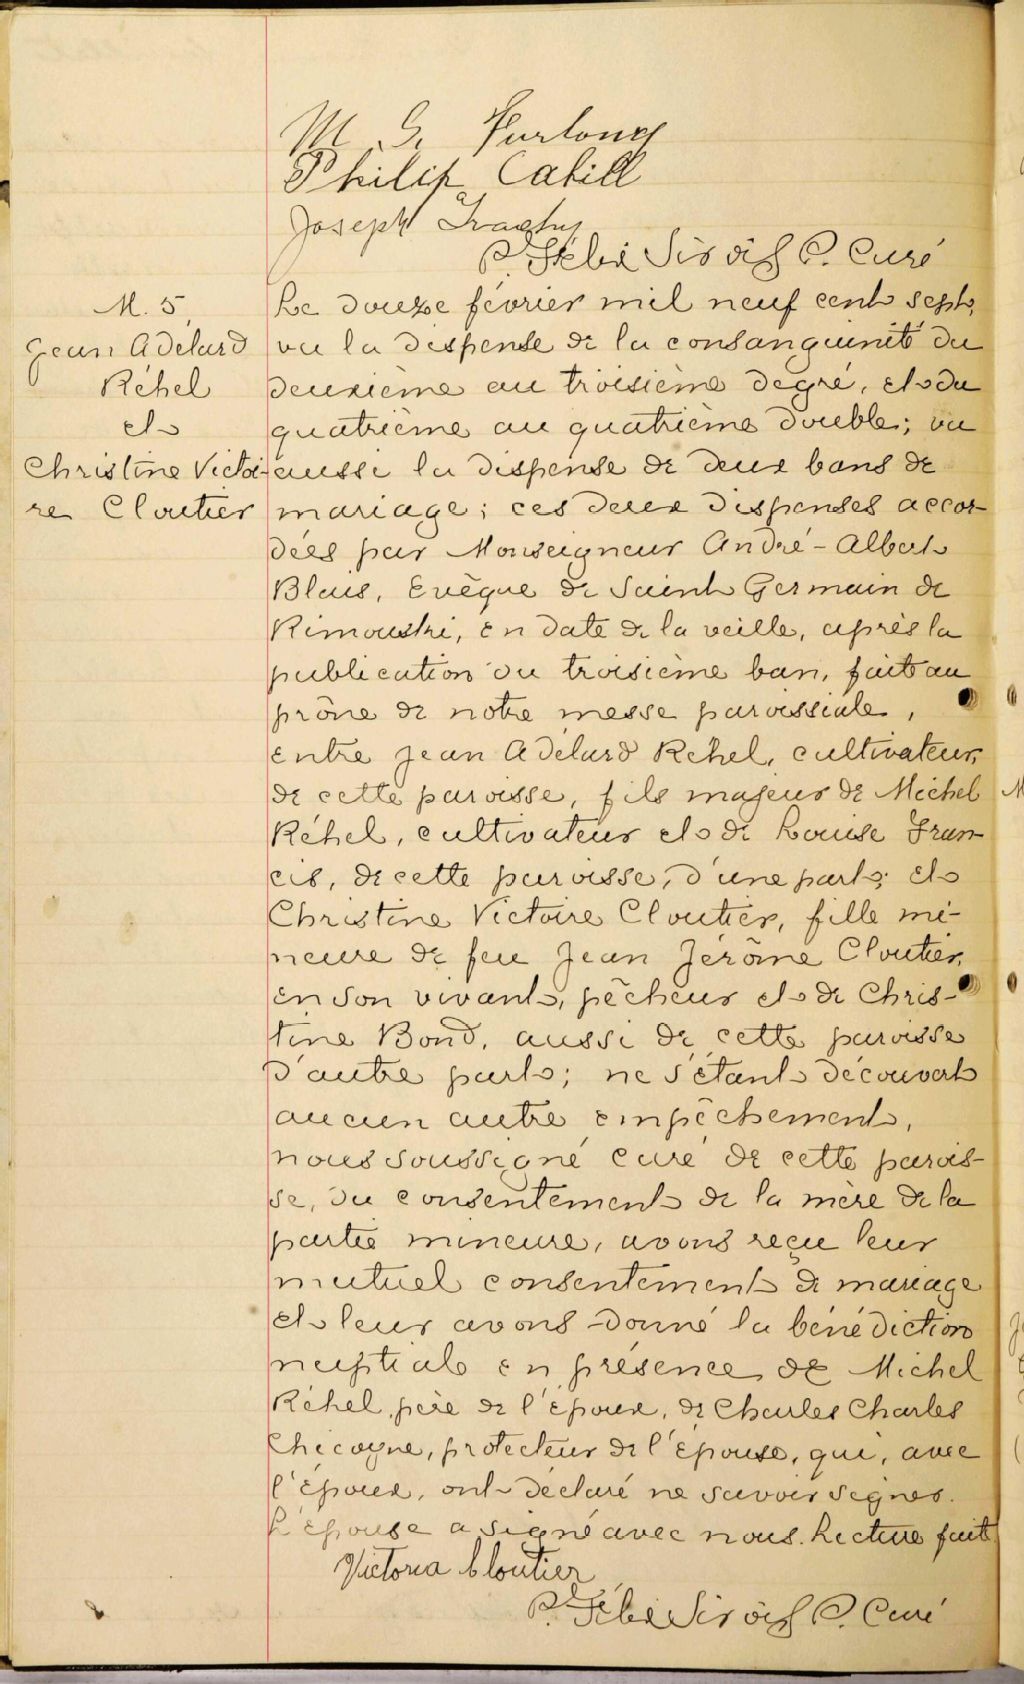 M. G. Furlong
Philip Cahill
Joseph Trachy
P. Félix Sirois P. Curé
M. 5
Jean Adélard
Réhel
et
Christine Victoi-
re Cloutier
Le douze février mil neuf cent sept,
vu la dispense de la consanguinité du
deuxième au troisième degré, et du
quatrième au quatrième double; vu
aussi la dispense de deux bans de
mariage; ces deux dispenses accor-
dées par Monseigneur André-Albert
Blais, Evêque de Saint Germain de
Rimouski, en date de la veille, après la
publication du troisième ban, faite au
prône de notre messe paroissiale,
entre Jean Adélard Réhel, cultivateur,
de cette paroisse, fils majeur de Michel
Réhel, cultivateur et de Louise Fran-
cis, de cette paroisse, d'une part; et
Christine Victoire Cloutier, fille mi-
neure de feu Jean Jérôme Cloutier,
en son vivant, pêcheur et de Chris-
tine Bond, aussi de cette paroisse
d'autre part; ne s'étant découvert
aucun autre empêchement,
nous soussigné curé de cette parois-
se, du consentement de la mère de la
partie mineure, avons reçu leur
mutuel consentement de mariage
et leur avons donné la bénédiction
nuptiale en présence de Michel
Réhel, père de l'époux, de Charles Charles
Chicoyne, protecteur de l'épouse, qui, avec
l'époux, ont déclaré ne savoir signer.
L'épouse a signé avec nous. Lecture faite
Victoria Cloutier
P. Félix Sirois P. Curé